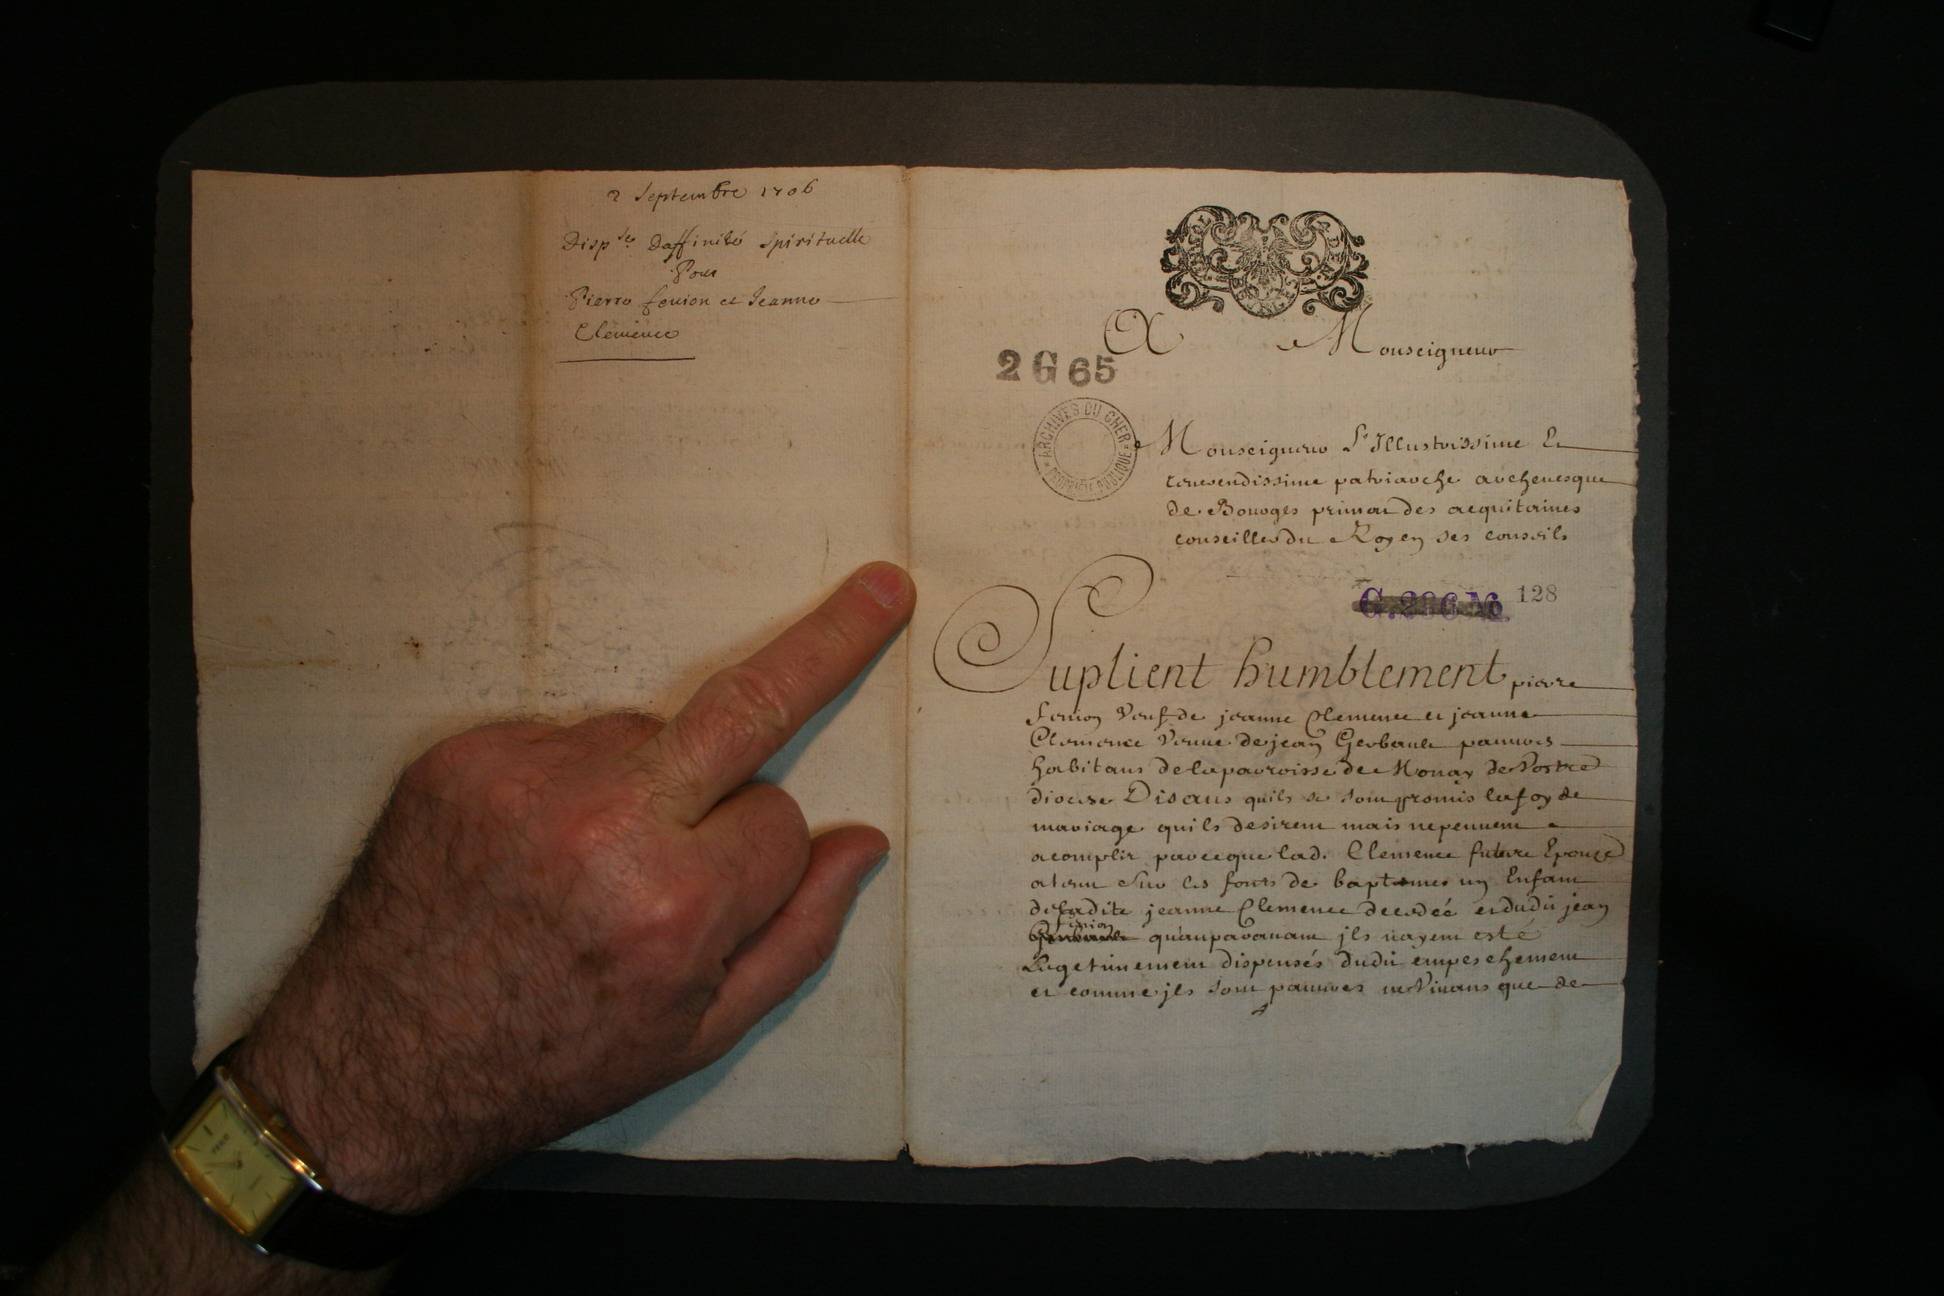 2 Septembre 1706
Disp.ses Daffinité Spirituelle
Pour
Pierre fenion et Jeanne
Clemence
A Monseigneur
2 G 65
ARCHIVES DU CHER
PROPRIÉTÉ PUBLIQUE
Monseigneur L'Illustrissime Et
reverendissime patriarche archevesque
de Bourges primat des acquitaines
conseiller du Roy en ses conseils
128
Suplient humblement pierre
fenion Veuf de jeanne Clemence et jeanne
Clemence Veuve de jean Gerbault pauvres
habitans de la parroisse de Nonay de Vostre
diocese Disans quils se sont promis la foy de
mariage quils desirent mais ne peuvent
acomplir parceque lad. Clemence future Epouze
a tenu sur les fonts de baptemes un Enfant
de ladite jeanne Clemence decedée et dudit jean
fenion
qu'auparavant jls nayent esté
Legetimement dispensés dudit empeschement
et comme jls sont pauvres ne Vivans que de